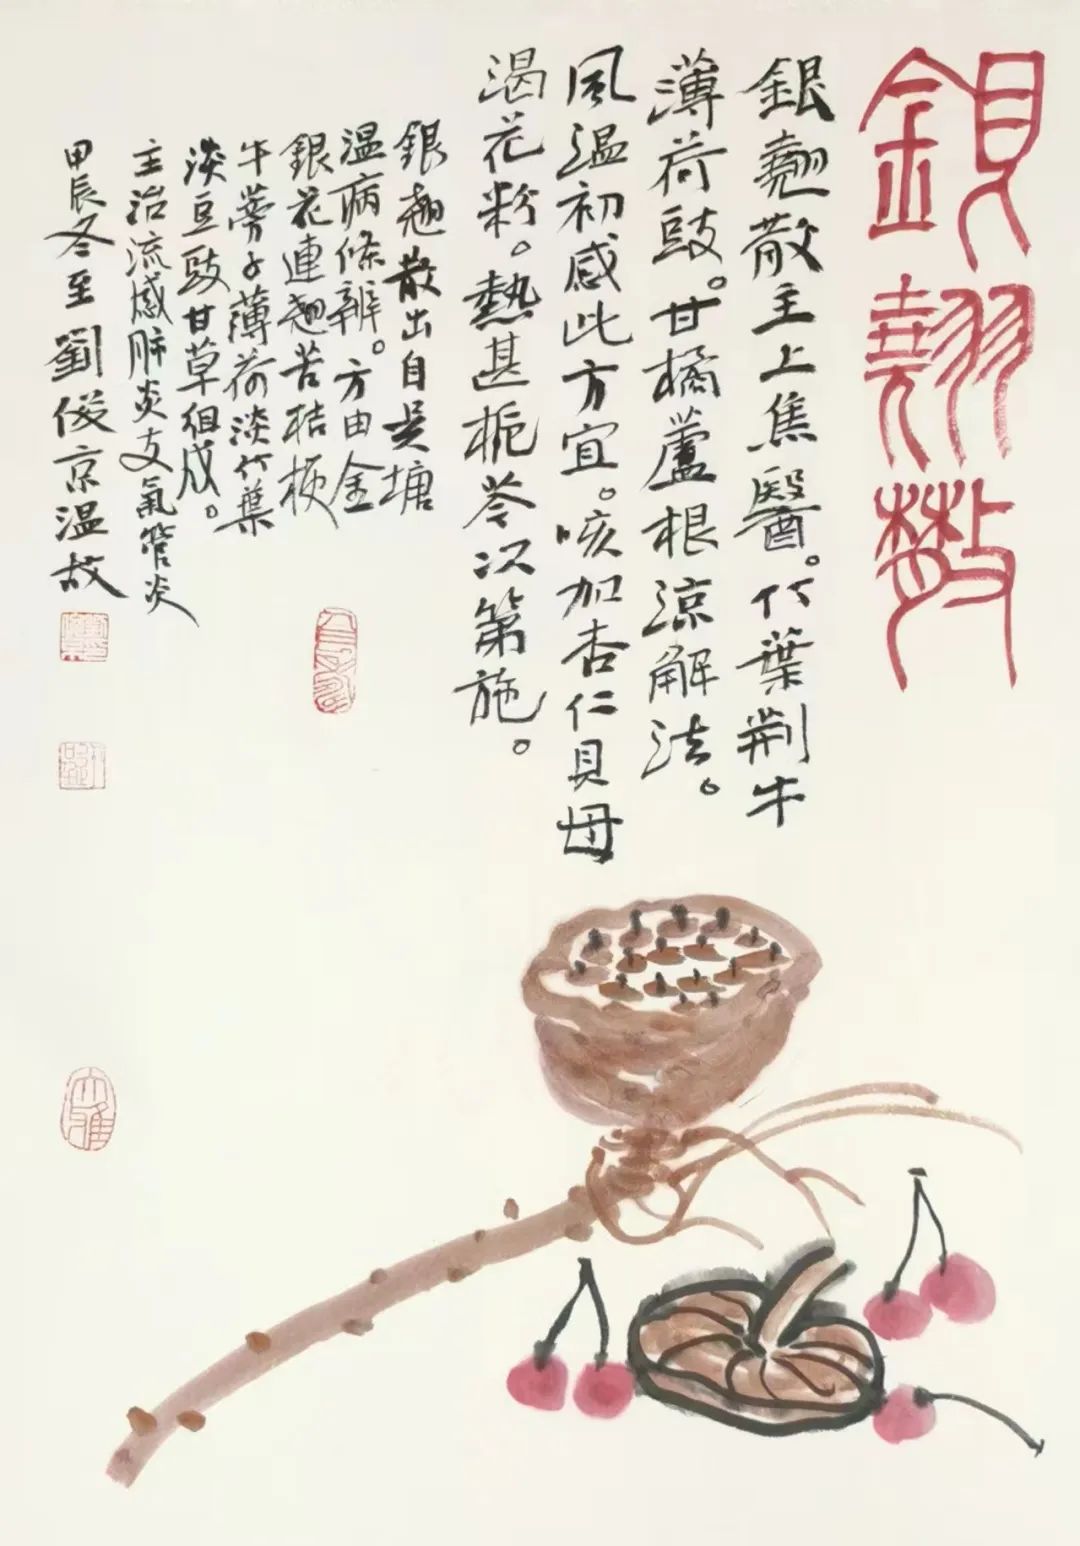 銀翹散
銀翹散主上焦醫。竹葉荆牛
薄荷豉。甘橘蘆根涼解法。
風溫初感此方宜。咳加杏仁貝母
渴花粉。熱甚梔芩次第施。
銀翹散出自吴塘
温病條辨。方由金
銀花連翘苦桔梗
牛蒡子薄荷淡竹葉
淡豆豉甘草组成。
主治流感肺炎支氣管炎
甲辰冬至劉俊京温故
大雅